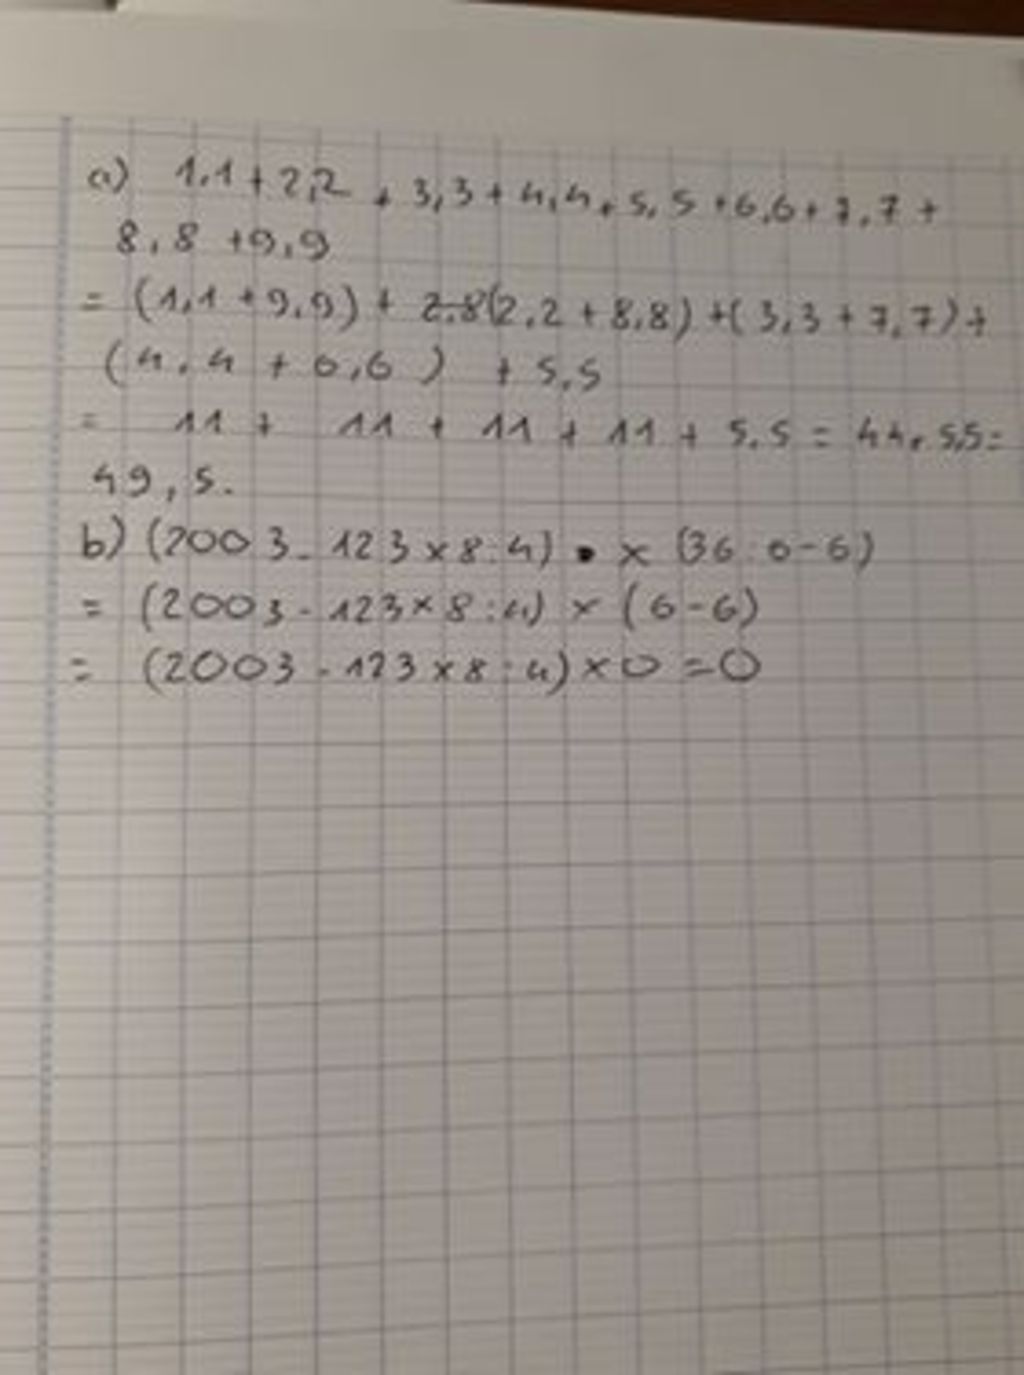 a) 1,1 + 2,2 + 3,3 + 4,4 + 5,5 + 6,6 + 7,7 +
8,8 + 9,9
= (1,1 + 9,9) + 2.8(2,2 + 8,8) + (3,3 + 7,7) +
(4,4 + 6,6) + 5,5
= 11 + 11 + 11 + 11 + 5,5 = 44 + 5,5 =
49,5.
b) (2003 - 123 x 8 : 4) • x (36 : 6 - 6)
= (2003 - 123 x 8 : 4) x (6 - 6)
= (2003 - 123 x 8 : 4) x 0 = 0